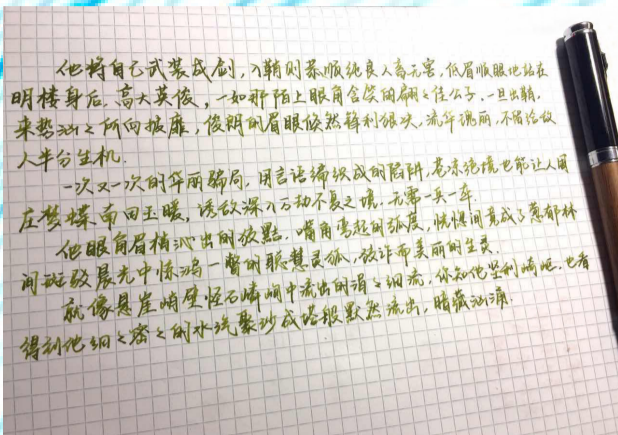 他将自己武装成剑，入鞘则恭顺纯良人畜无害，低眉顺眼地站在
明楼身后，高大英俊，一如那陌上眼角含笑的翩々佳公子，一旦出鞘，
来势汹々所向披靡，俊朗的眉眼倏然锋利狠决，流华瑰丽，不留给敌
人半分生机.
一次又一次的华丽骗局，用言语编织成的陷阱，苍凉绝境也能让人用
庄梦蝶南田玉暖，诱敌深入万劫不复之境，无需一兵一车.
他眼角眉梢沁出的狡黠，嘴角弯起的弧度，恍惚间竟成了葱郁林
间斑驳晨光中惊鸿一瞥的聪慧灵狐，狡诈而美丽的生灵.
就像悬崖峭壁怪石嶙峋中流出的涓々细流，你知他坚利崎岖，也看
得到他细々密々的水流聚沙成塔般默然流出，暗藏汹涌.